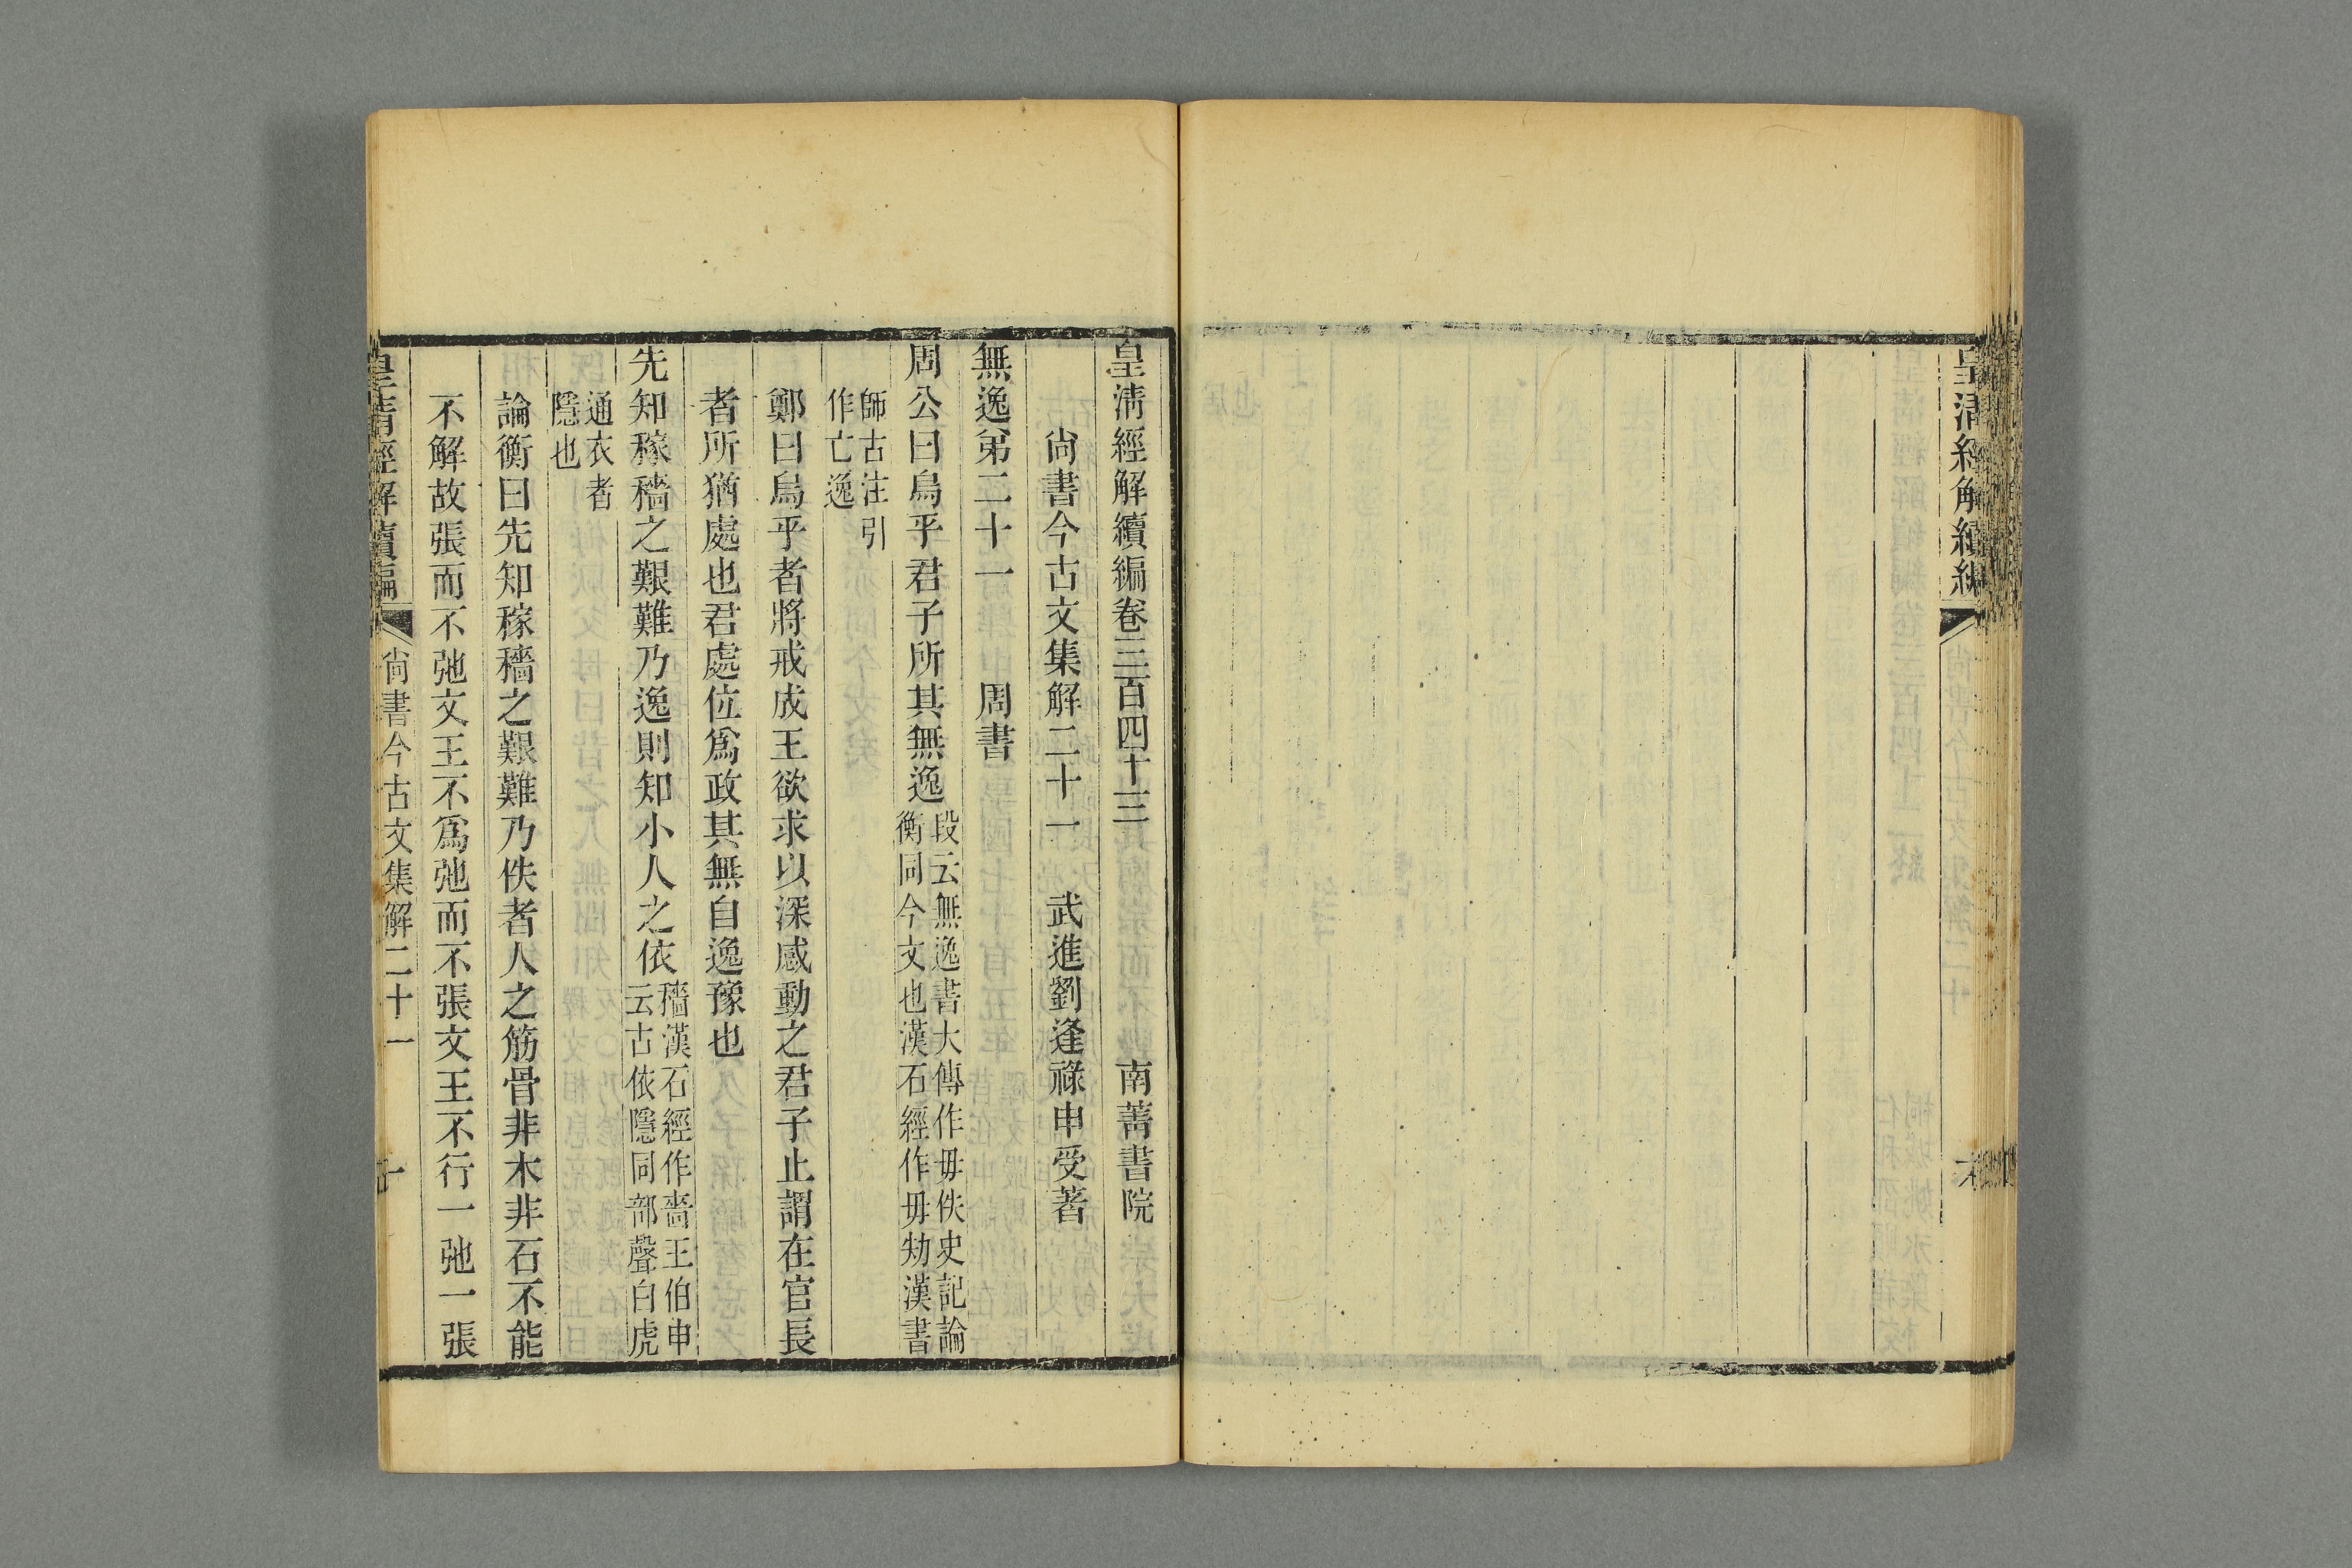 皇清經解續編
六
皇清經解續編卷三百四十三 南菁書院
尚書今古文集解二十一 武進劉逢祿申受著
無逸第二十一 周書
周公曰烏乎君子所其無逸
段云無逸書大傳作毋佚史記論
衡同今文也漢石經作毋劮漢書
師古注引
作亡逸
鄭曰烏乎者將戒成王欲求以深感動之君子止謂在官長
者所猶處也君處位爲政其無自逸豫也
先知稼穡之艱難乃逸則知小人之依
穡漢石經作嗇王伯申
云古依隱同部聲白虎
通衣者
隱也
論衡曰先知稼穡之艱難乃佚者人之筋骨非木非石不能
不解故張而不弛文王不爲弛而不張文王不行一弛一張
皇清經解續編 尚書今古文集解二十一 一